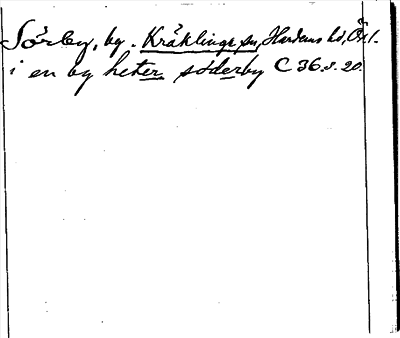 Sörby, by. Kräklinge sn, Hardemo hd, Ör l.
i en by heter söderby C 36. s. 20.